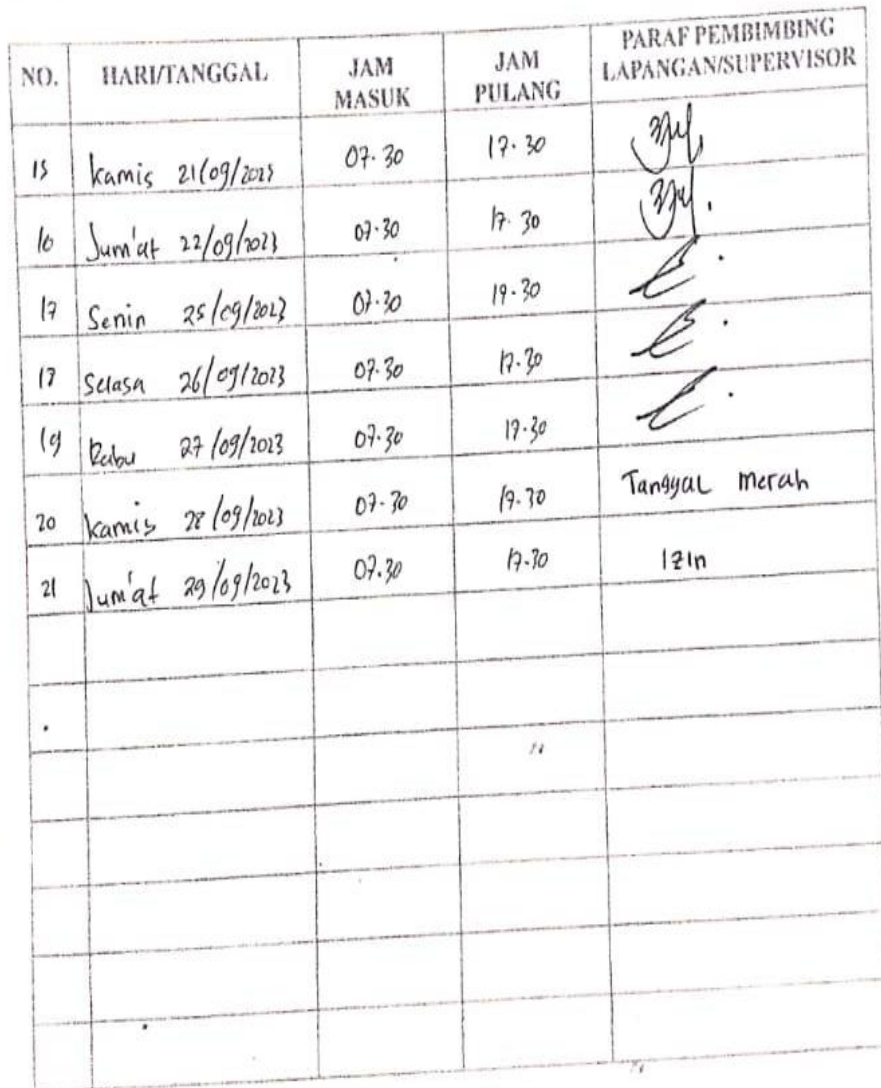 NO. HARI/TANGGAL JAM MASUK JAM PULANG PARAF PEMBIMBING LAPANGAN/SUPERVISOR
15 Kamis 21/09/2023 07.30 17.30
16 Jum'at 22/09/2023 07.30 17.30
17 Senin 25/09/2023 07.30 17.30
18 Selasa 26/09/2023 07.30 17.30
19 Rabu 27/09/2023 07.30 17.30
20 Kamis 28/09/2023 07.30 17.30 Tanggal merah
21 Jum'at 29/09/2023 07.30 17.30 Izin